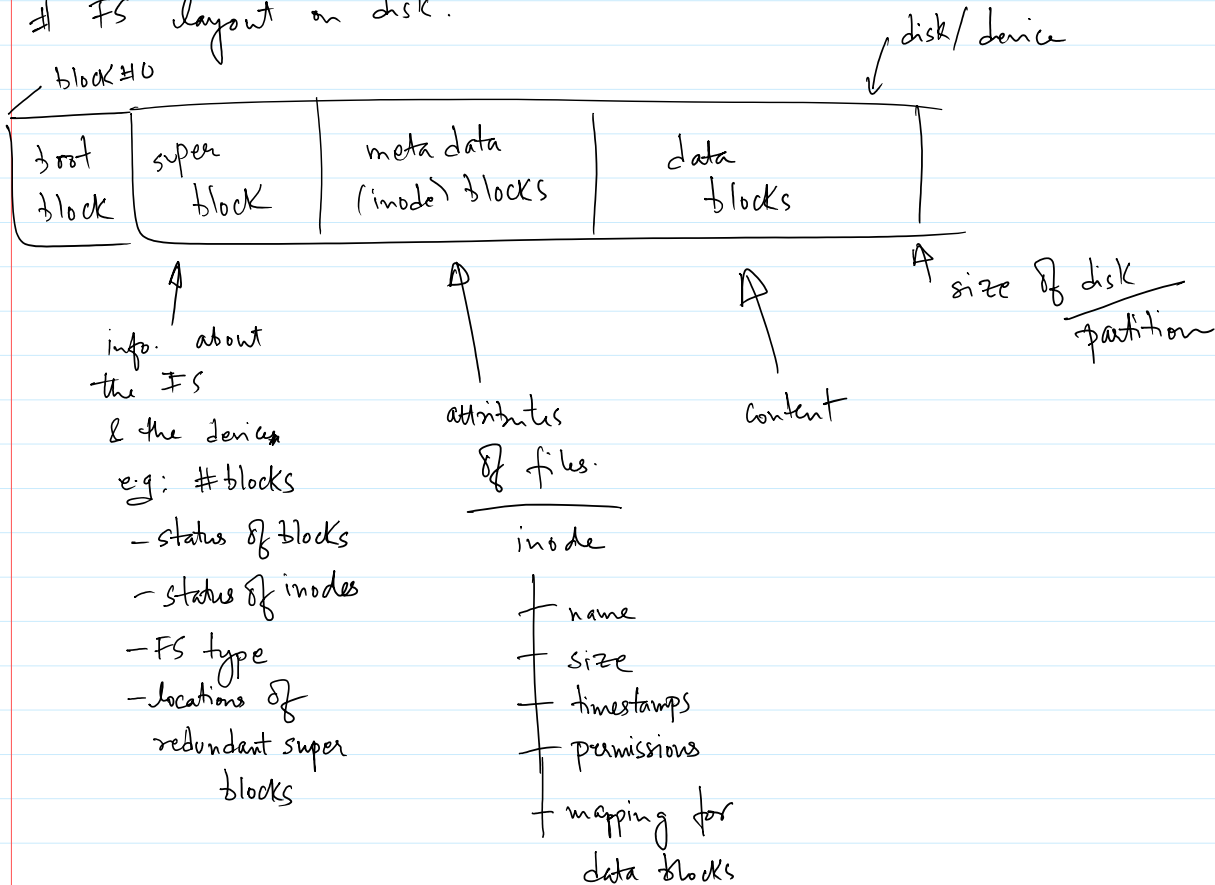 # FS layout on disk.
disk/device
block#0
boot block
super block
meta data (inode) blocks
data blocks
size of disk/partition
info. about
the FS
& the device
e.g: #blocks
- status of blocks
- status of inodes
- FS type
- locations of
redundant super
blocks
attributes
of files.
inode
name
size
timestamps
permissions
mapping for
data blocks
content